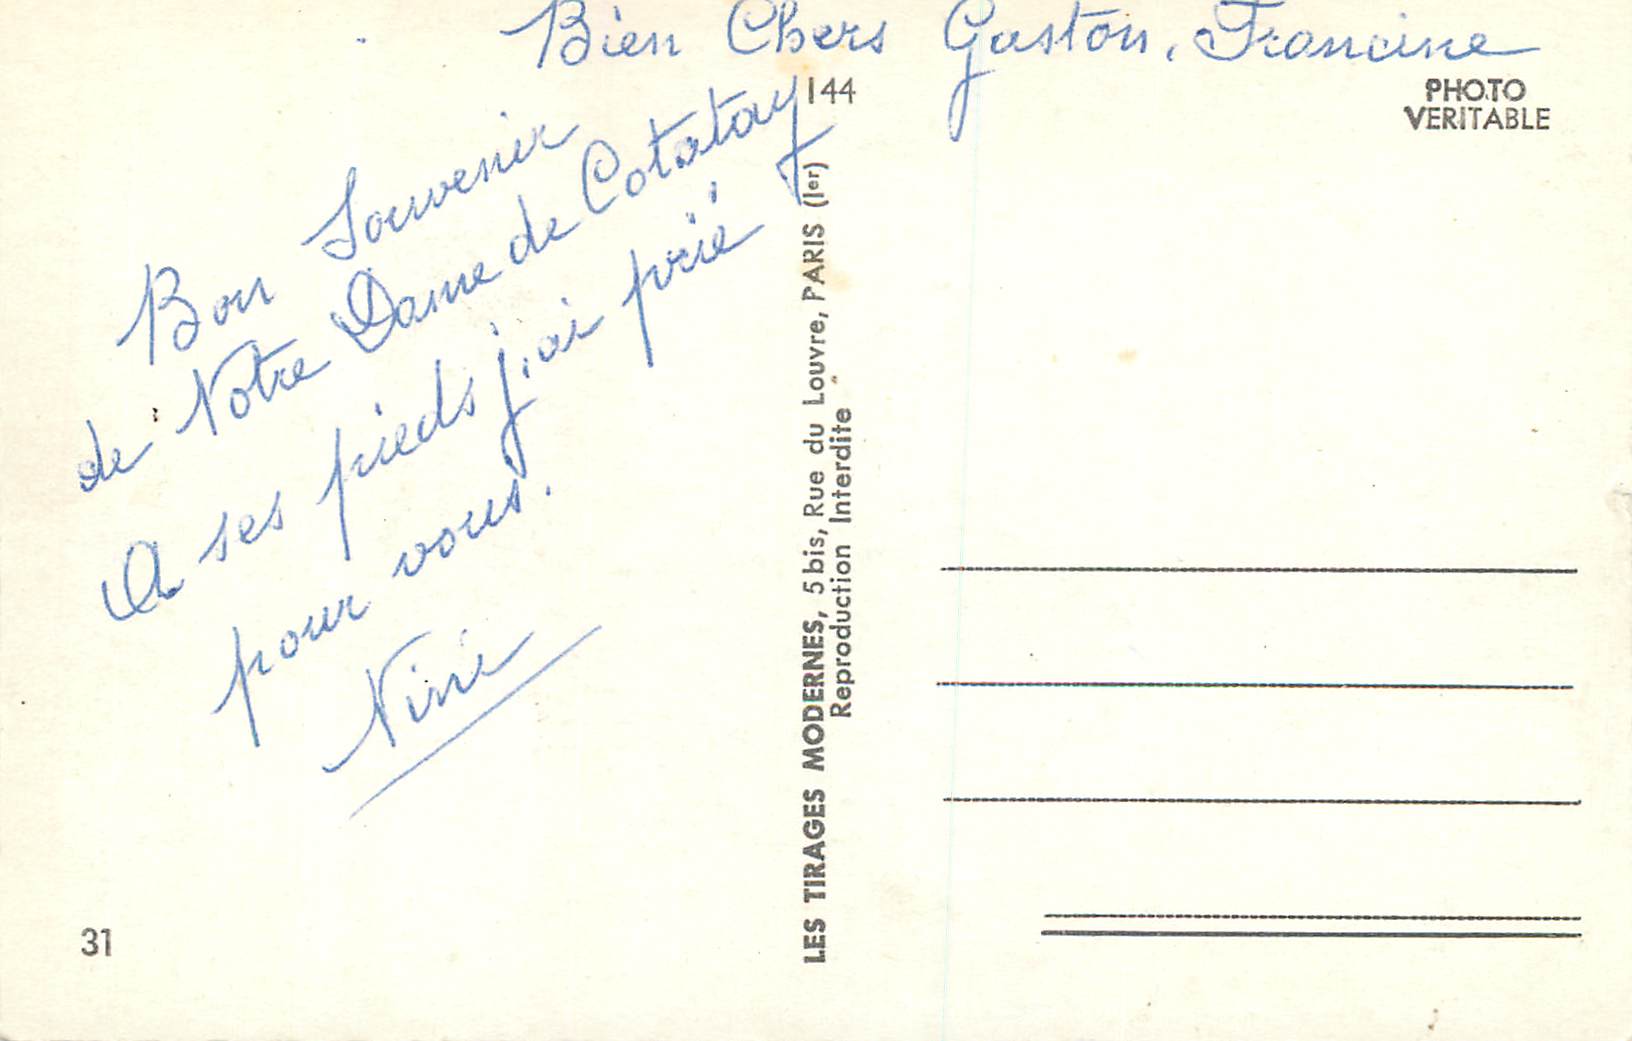 Bien Chers Gaston, Francine
Bon Souvenir
de Notre Dame de Cotatay
A ses pieds j'ai prié
pour vous.
Nini
31
144
LES TIRAGES MODERNES, 5 bis, Rue du Louvre, PARIS (Ier)
Reproduction Interdite
PHOTO
VERITABLE